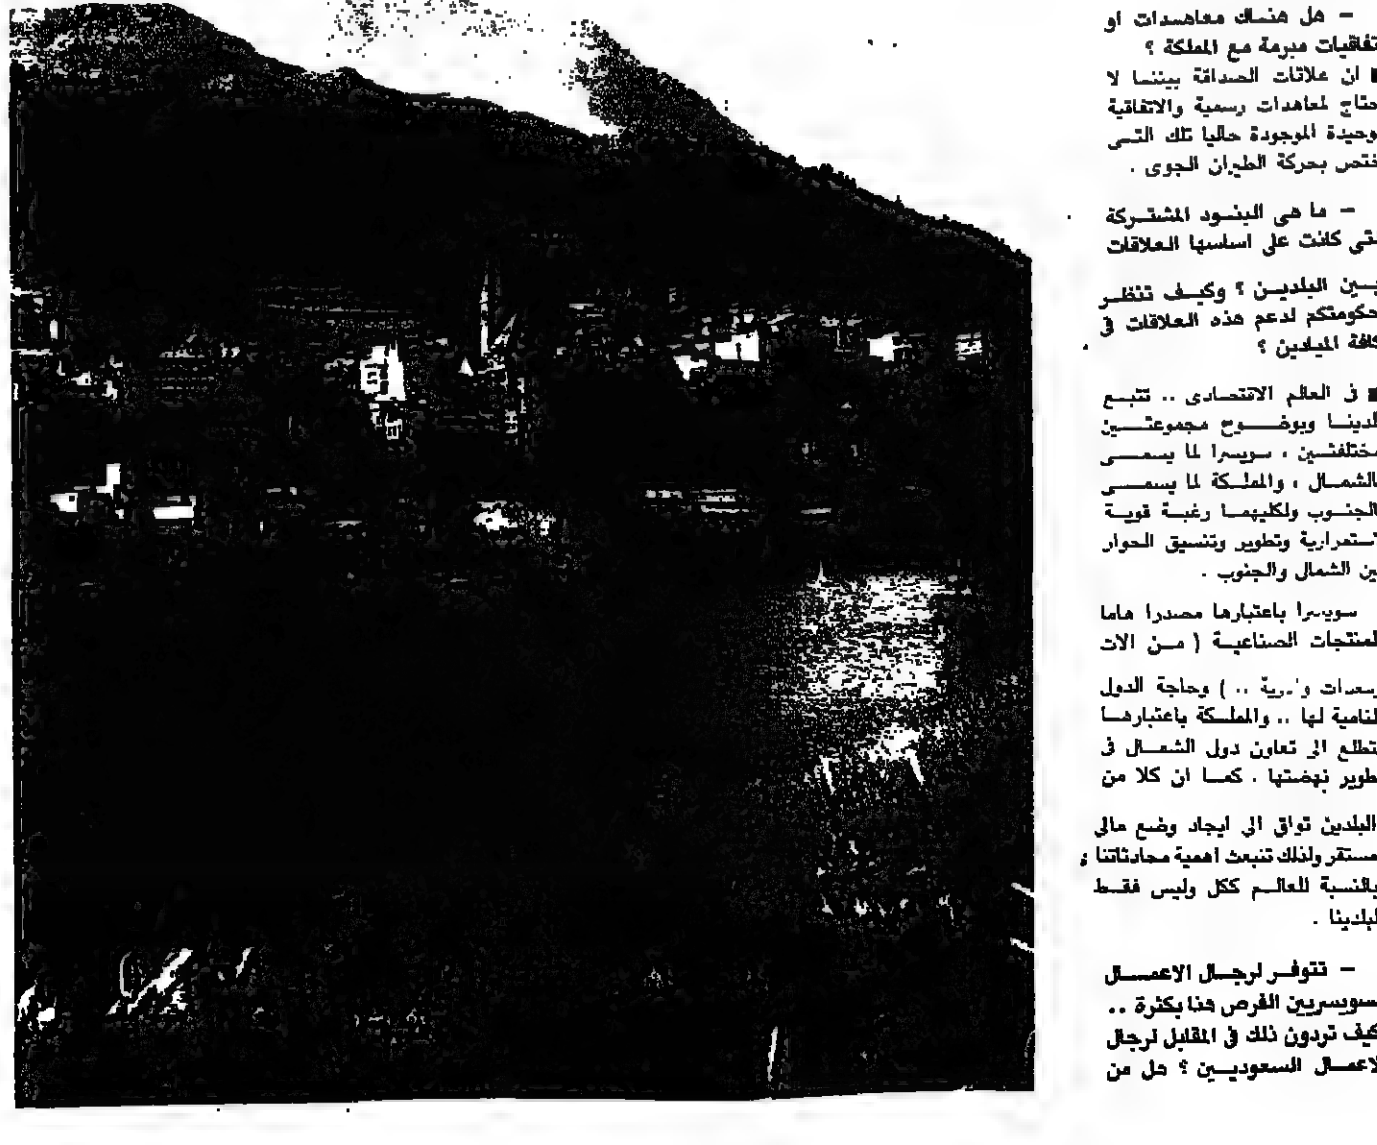 – هل هنساك معاهسدات او
تفاقيات مبرمة مع المملكة ؟
■ ان علاقات الصداقة بيننسا لا
حتاج لمعاهدات رسمية والاتفاقية
وحيدة الموجودة حاليا تلك التسى
ختص بحركة الطيران الجوى .
– ما هى البنسود المشتسركة
تى كانت على اساسها العلاقات
بسين البلديسن ؟ وكيسف تنظسر
حكومتكم لدعم هذه العلاقات فى
كافة الميادين ؟
■ فى العالم الاقتصادى .. تتبسع
لدينسا وبوضسسوح مجموعتسسين
مختلفتسين ، سويسرا لما يسمسسى
بالشمسال ، والمملسكة لما يسمسسى
الجنسوب ولكليهمسا رغبسة قويسة
استمرارية وتطوير وتنسيق الحوار
بين الشمال والجنوب .
سويسرا باعتبارها مصدرا هاما
لمنتجات الصناعيسة ( مسن الات
وحاجة الدول
لنامية لها .. والمملسكة باعتبارهسا
تتطلع الى تعاون دول الشمسال فى
طوير نهضتها . كمسا ان كلا من
البلدين تواق الى ايجاد وضع مالى
مستقر ولذلك تنبعث اهمية محادثاتنا
بالنسبة للعالسم ككل وليس فقسط
لبلدينا .
– تتوفسر لرجسال الاعمسسال
سويسريين الفرص هنا بكثرة ..
كيف تردون ذلك فى المقابل لرجال
لاعمسال السعوديسين ؟ هل من